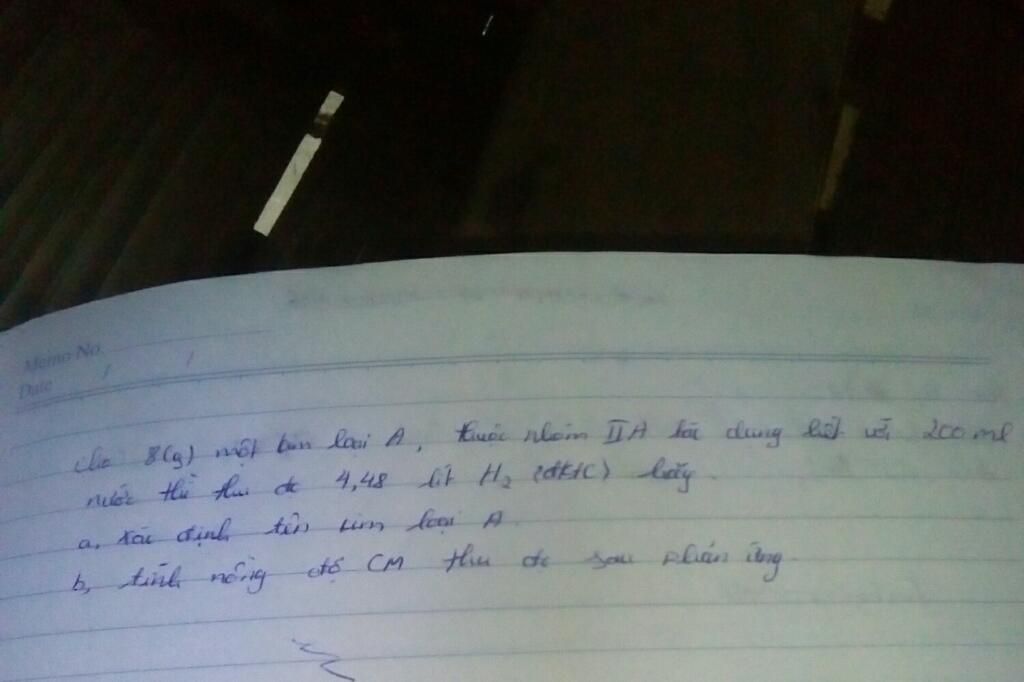 Memo No.
Date / /
Cho 8(g) một kim loại A, thuộc nhóm IIA tác dụng hết với 200 ml
nước thì thu đc 4,48 lít H2 (đktc) hãy
a, xác định tên kim loại A
b, tính nồng độ CM thu đc sau phản ứng